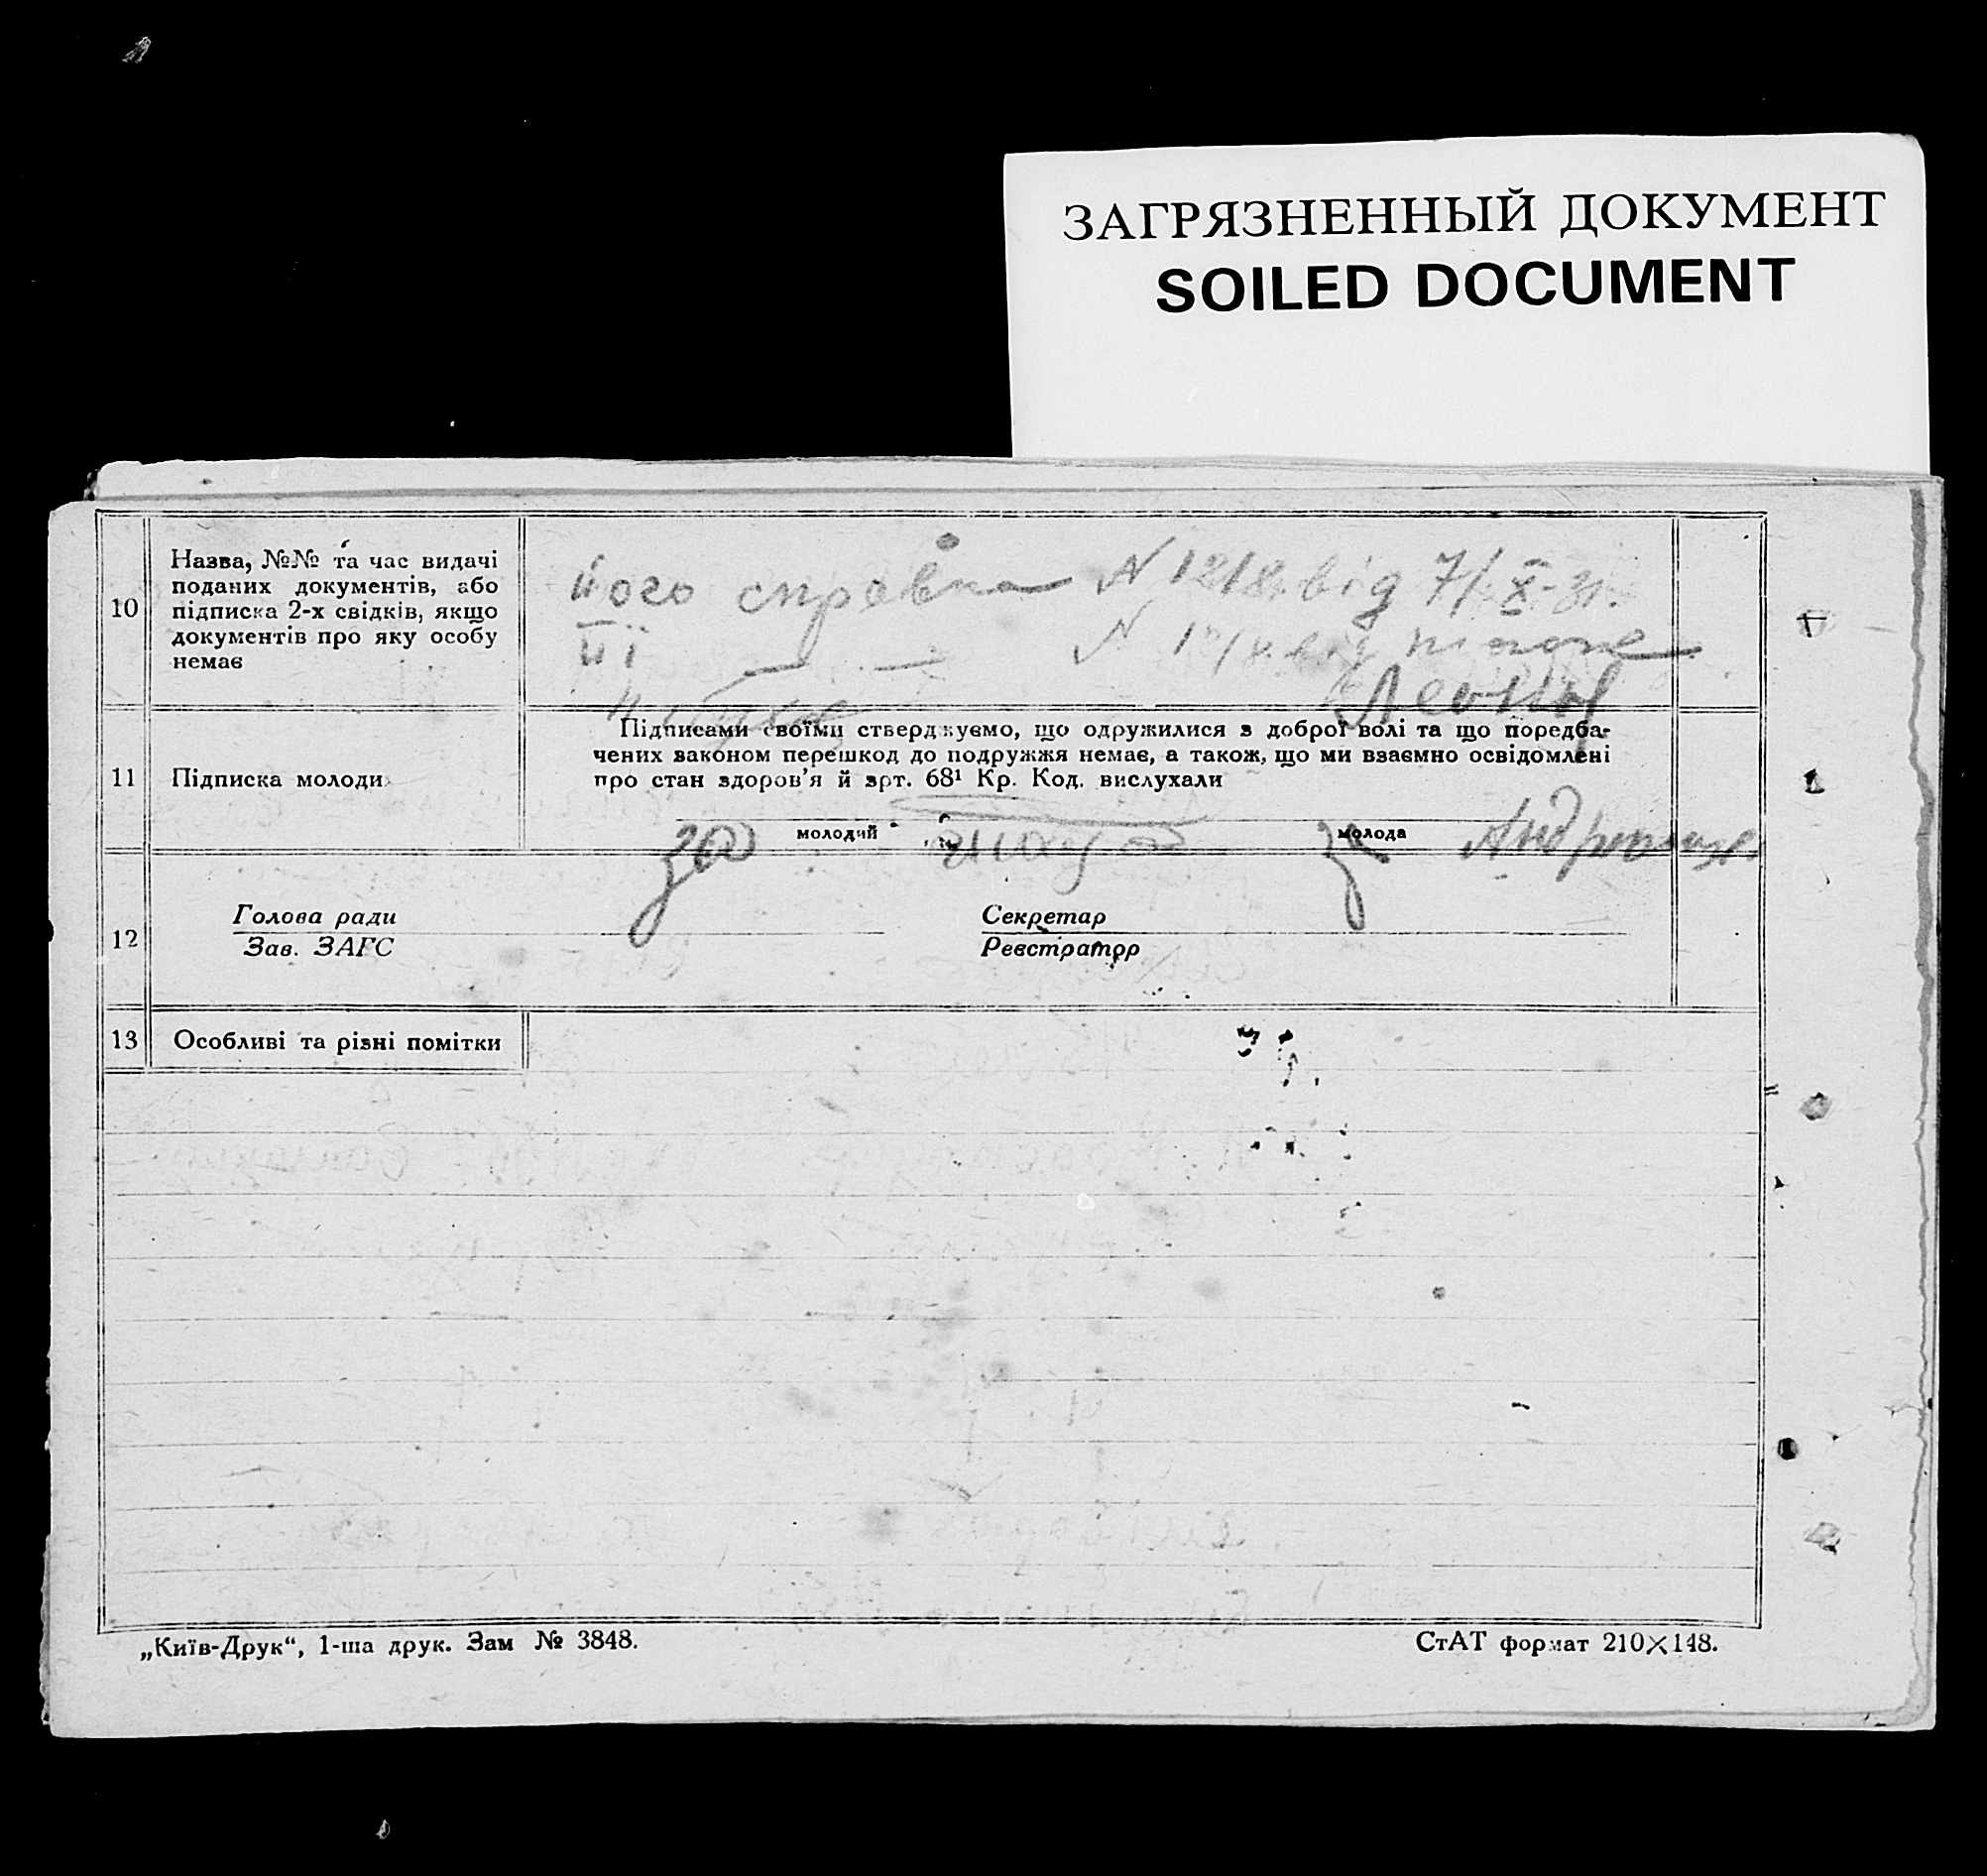 ЗАГРЯЗНЕННЫЙ ДОКУМЕНТ
SOILED DOCUMENT
10
Назва, №№ та час видачі
поданих документів, або
підписка 2-х свідків, якщо
документів про яку особу
немає
його справка N 1218. від 7/X-31.
її N від
11
Підписка молоди
Підписами своїми стверджуємо, що одружилися з доброї волі та що передба-
чених законом перешкод до подружжя немає, а також, що ми взаємно освідомлені
про стан здоров'я й арт. 68¹ Кр. Код. вислухали
молодий
молода
12
Голова ради
Зав. ЗАГС
Секретар
Реєстратор
13
Особливі та різні помітки
„Київ-Друк“, 1-ша друк. Зам № 3848.
СтАТ формат 210×148.